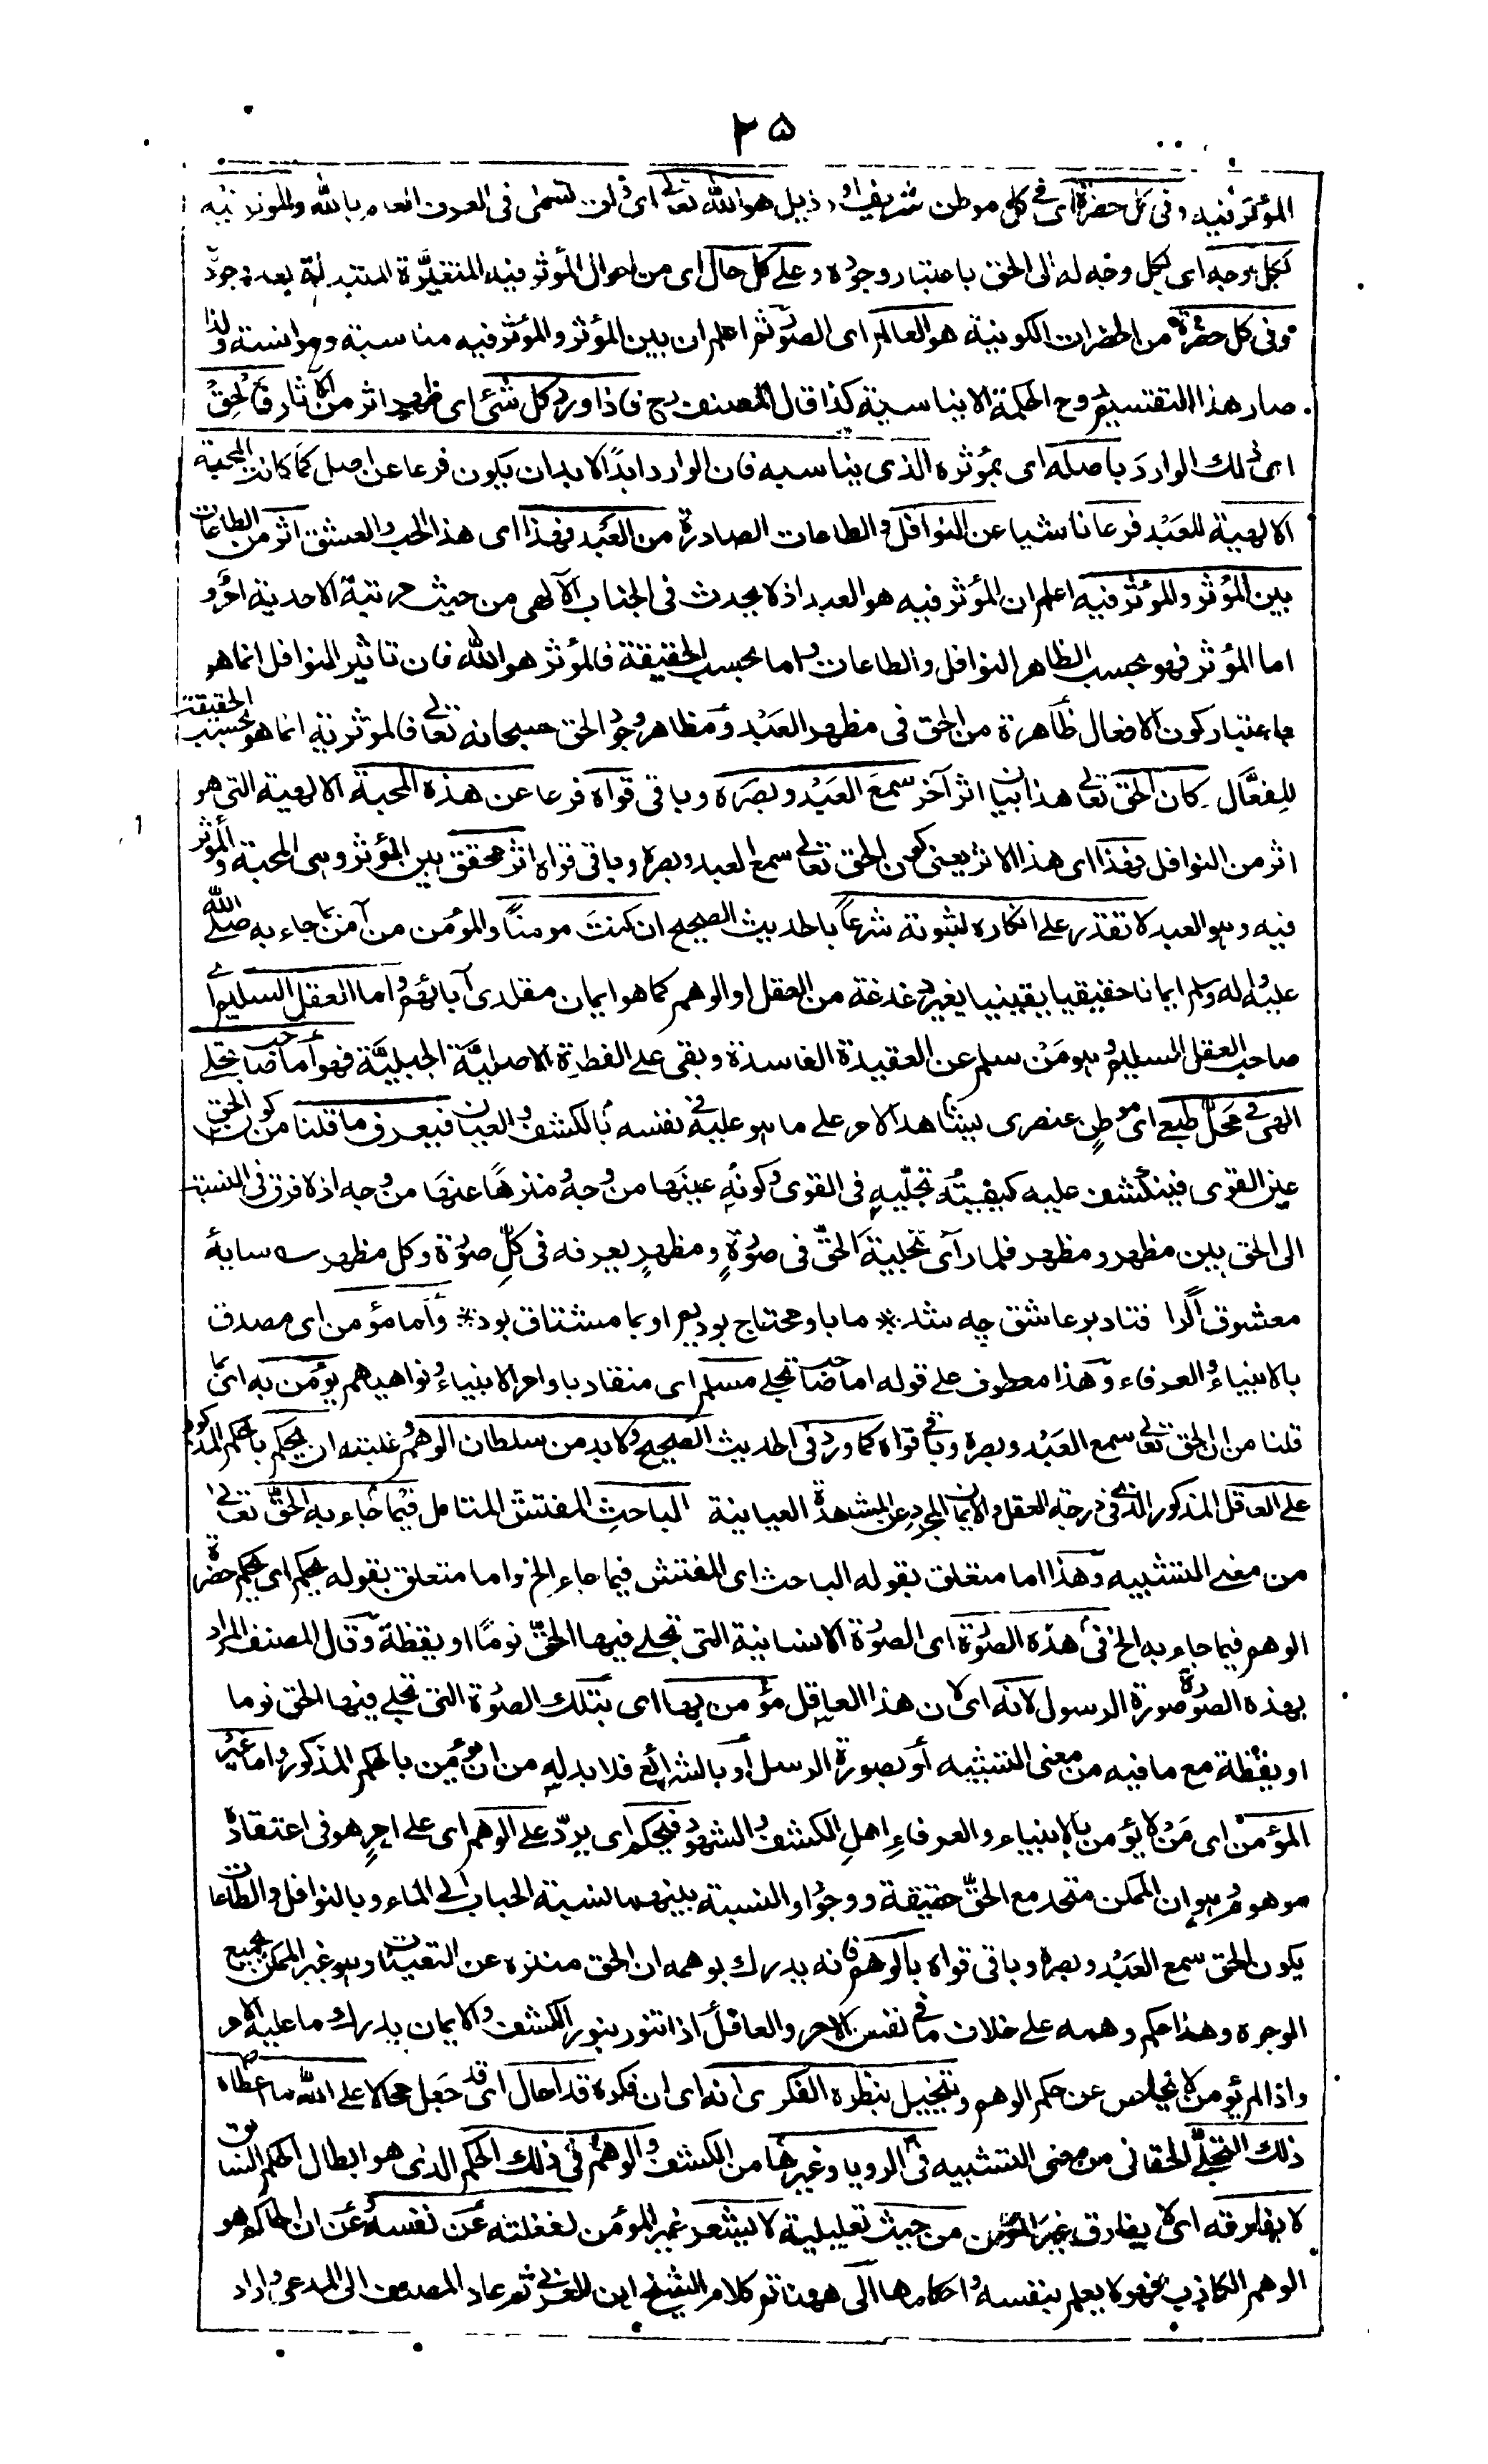 ٢٥
المؤثر فيه وفى كل حضرة اى فى كل موطن شريف او رذيل هو الله تعالى اى ذات تسمى فى العرف العام بالله والمؤثر فيه
بكل وجه اى بكل وجه له الى الحق باعتبار وجوده وعلى كل حال اى من احوال المؤثر فيه المتغيّرة المتبدلة بعد وجود
وفى كل حضرة من الحضرات الكونية هو العالم اى الصور ثم اعلم ان بين المؤثر والمؤثر فيه مناسبة وموانسة ولذا
صار هذا التقسيم روح الحكمة الايناسية كذا قال المصنف رح فاذا ورد كل شئ اى ظهر اثر من الآثار فالحق
اى ذلك الوارد باصله اى بمؤثره الذى يناسبه فان الوارد ابدًا لابد ان يكون فرعا عن اصل كما كانت المحبة
الالهية للعبد فرعا ناشيا عن النوافل والطاعات الصادرة من العبد فهذا اى هذا الحب والعشق اثر من الطاعات
بين المؤثر والمؤثر فيه اعلم ان المؤثر فيه هو العبد اذ لا يحدث فى الجناب الآلهى من حيث مرتبة الاحدية امر و
اما المؤثر فهو بحسب الظاهر النوافل والطاعات واما بحسب الحقيقة فالمؤثر هو الله فان تاثير النوافل انما هو
باعتبار كون الافعال ظاهرة من الحق فى مظهر العبد ومظاهر وجود الحق سبحانه تعالى فالمؤثرية انما هو بحسب الحقيقة
للفعّال كان الحق تعالى هذا بيان اثر آخر سمع العبد وبصره وباقى قواه فرعا عن هذه المحبة الالهية التى هو
اثر من النوافل فهذا اى هذا الاثر يعنى كون الحق تعالى سمع العبد وبصره وباقى قواه اثر محقق بين المؤثر وهى المحبة والمؤثر
فيه وهو العبد لا تقدر على انكاره لثبوته شرعاً بالحديث الصحيح ان كنت مومناً والمؤمن من آمن بما جاء به صلى الله
عليه واله وسلم ايمانا حقيقيا يقينيا بغير دغدغة من العقل او الوهم كما هو ايمان مقلدى آبائهم واما العقل السليم اى
صاحب العقل السليم وهو من سلم عن العقيدة الفاسدة وبقى على الفطرة الاصليّة الجبليّة فهو اما صاحب تجلى
الهى فى محلّ طبعى اى موطن عنصرى يشاهد الامر على ما هو عليه فى نفسه بالكشف والعيان فيعرف ما قلنا من كون الحق
عين القوى فينكشف عليه كيفيّته تجلّيه فى القوى وكونه عينها من وجه ومنزهاً عنها من وجه اذ لا فرق فى النسبة
الى الحق بين مظهر ومظهر فلما رآى تجلية الحقّ فى صورةٍ ومظهرٍ يعرفه فى كلّ صورة وكل مظهر سه سايۀ
معشوق اگر افتاد بر عاشق چه شد * ما باو محتاج بوديم او بما مشتاق بود * واما مؤمن اى مصدق
بالانبياء والعرفاء وهذا معطوف على قوله اما صاحب تجلى مسلم اى منقاد باوامر الانبياء ونواهيهم يؤمن به اى بما
قلنا من ان الحق تعالى سمع العبد وبصره وباقى قواه كما ورد فى الحديث الصحيح ولا بد من سلطان الوهم وغلبته ان يحكم بالحكم المذكور
على العاقل المذكور الذى فى درجة العقل والايمان المجرد عن المشهدة العيانية الباحث المفتش المتامل فيما جاء به الحق تعالى
من معنى التشبيه وهذا اما متعلق بقوله الباحث اى المفتش فيما جاء الخ واما متعلق بقوله يحكم اى يحكم حضرة
الوهم فيما جاء به الخ فى هذه الصورة اى الصورة الانسانية التى تجلى فيها الحقّ نومًا او يقظة وقال المصنف المراد
بهذه الصورة صورة الرسول لانه اى لان هذا العاقل مؤمن بها اى بتلك الصورة التى تجلى فيها الحق نوما
او يقظة مع ما فيه من معنى التشبيه أو بصورة الرسل أو بالشرائع فلا بد له من ان يؤمن بالحكم المذكور واما غير
المؤمن اى من لا يؤمن بالانبياء والعرفاء اهل الكشف والشهود فيحكم اى يردّ على الوهم اى على امرٍ هو فى اعتقاده
موهوم وهو ان الممكن متحد مع الحقّ حقيقة ووجودا والنسبة بينهما نسبة الحباب الى الماء وبالنوافل والطاعات
يكون الحق سمع العبد وبصره وباقى قواه بالوهم فانه يدرك بوهمه ان الحق منزه عن التعينات وهو غير الممكن بجميع
الوجوه وهذا حكم وهمه على خلاف ما فى نفس الامر والعاقل اذا تنور بنور الكشف والايمان يدرك ما عليه الامر
واذا لم يؤمن لا يخلص عن حكم الوهم وتتخيل بنظره الفكرى انه اى ان فكره قد احال اى قد جعل محالا على الله ما اعطاه
ذلك التجلّى الحقانى من معنى التشبيه فى الرويا وغيرها من الكشف والوهم فى ذلك الحكم الذى هو ابطال الحكم السابق
لا يفارقه اى لا يفارق غير المؤمن من حيث تعليلية لا يشعر غير المؤمن لغفلته عن نفسه عن ان الحاكم هو
الوهم الكاذب فهو لا يعلم بنفسه واحكامها الى ههنا تم كلام الشيخ ابن العربى ثم عاد المصنف الى المدعى واراد